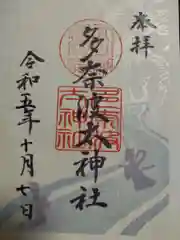 奉拝
多奈波太神社
令和五年十月七日